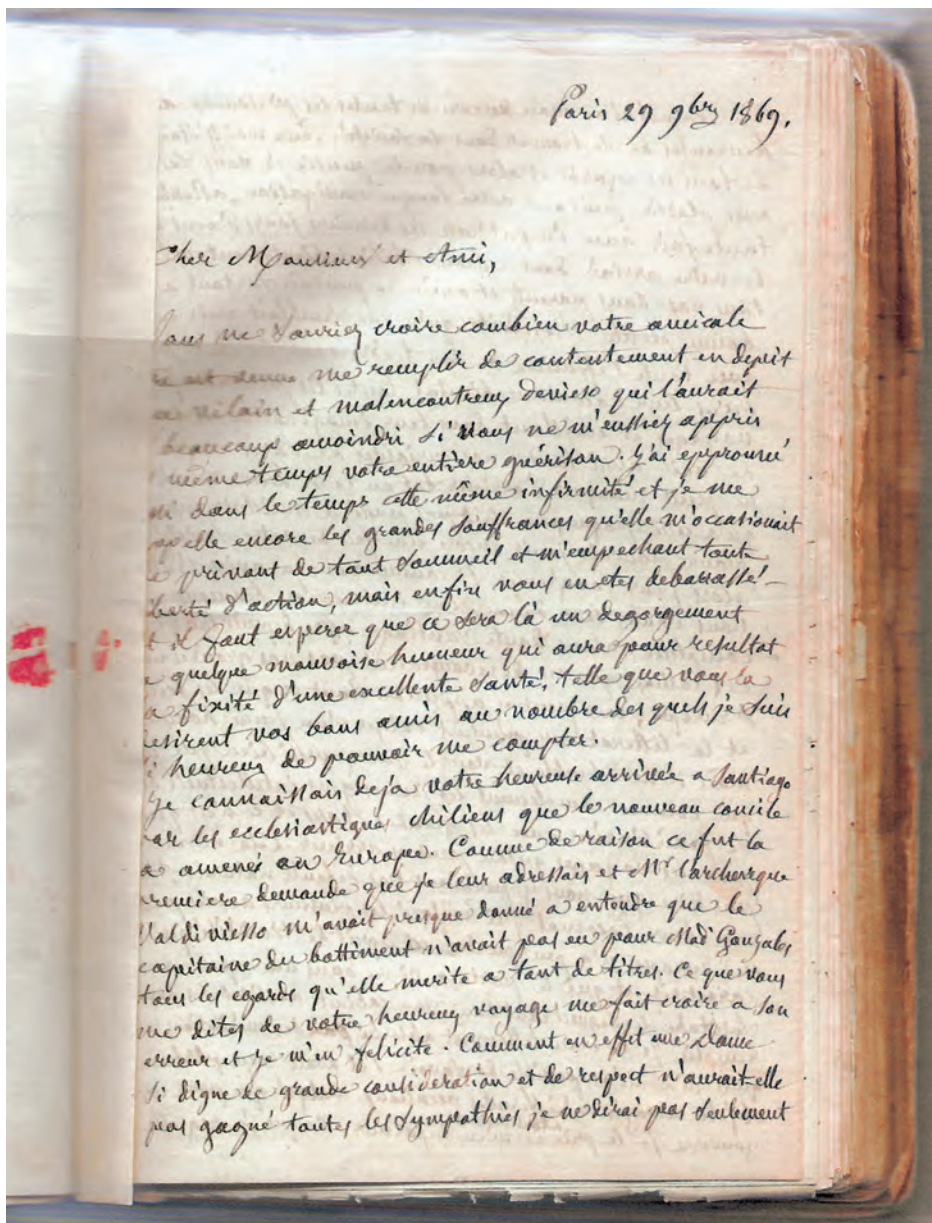 Paris 29 9bre 1869.
Cher Monsieur et Ami,
Vous ne sauriez croire combien votre amicale
est venue me remplir de contentement en depit
vilain et malencontreux devieso qui l'aurait
beaucoup amoindri si vous ne m'eussiez appris
même temps votre entière guérison. J'ai epprouvé
dans le temps cette même infirmité et je me
appelle encore les grandes souffrances qu'elle m'occasionait
privant de tout sommeil et m'empechant toute
liberté d'action, mais enfin vous en etes debarassé –
et il faut esperer que ce sera là un degorgement
quelque mauvaise humeur qui aura pour resultat
la fixité d'une excellente santé, telle que vous la
desirent vos bons amis au nombre des quels je suis
si heureux de pouvoir me compter.
Je connaissais deja votre heureuse arrivée a Santiago
par les ecclesiastiques chiliens que le nouveau concile
a amenés en Europe. Comme de raison ce fut la
premiere demande que je leur adressais et Mr l'archeveque
Valdiviesso m'avait presque donné a entendre que le
capitaine du battiment n'avait pas eu pour Mad Gonzales
tous les egards qu'elle merite a tant de titres. Ce que vous
me dites de votre heureux voyage me fait croire a son
erreur et je m'en felicite. Comment en effet une Dame
si digne de grande consideration et de respect n'aurait-elle
pas gagné toutes les sympathies je ne dirai pas seulement